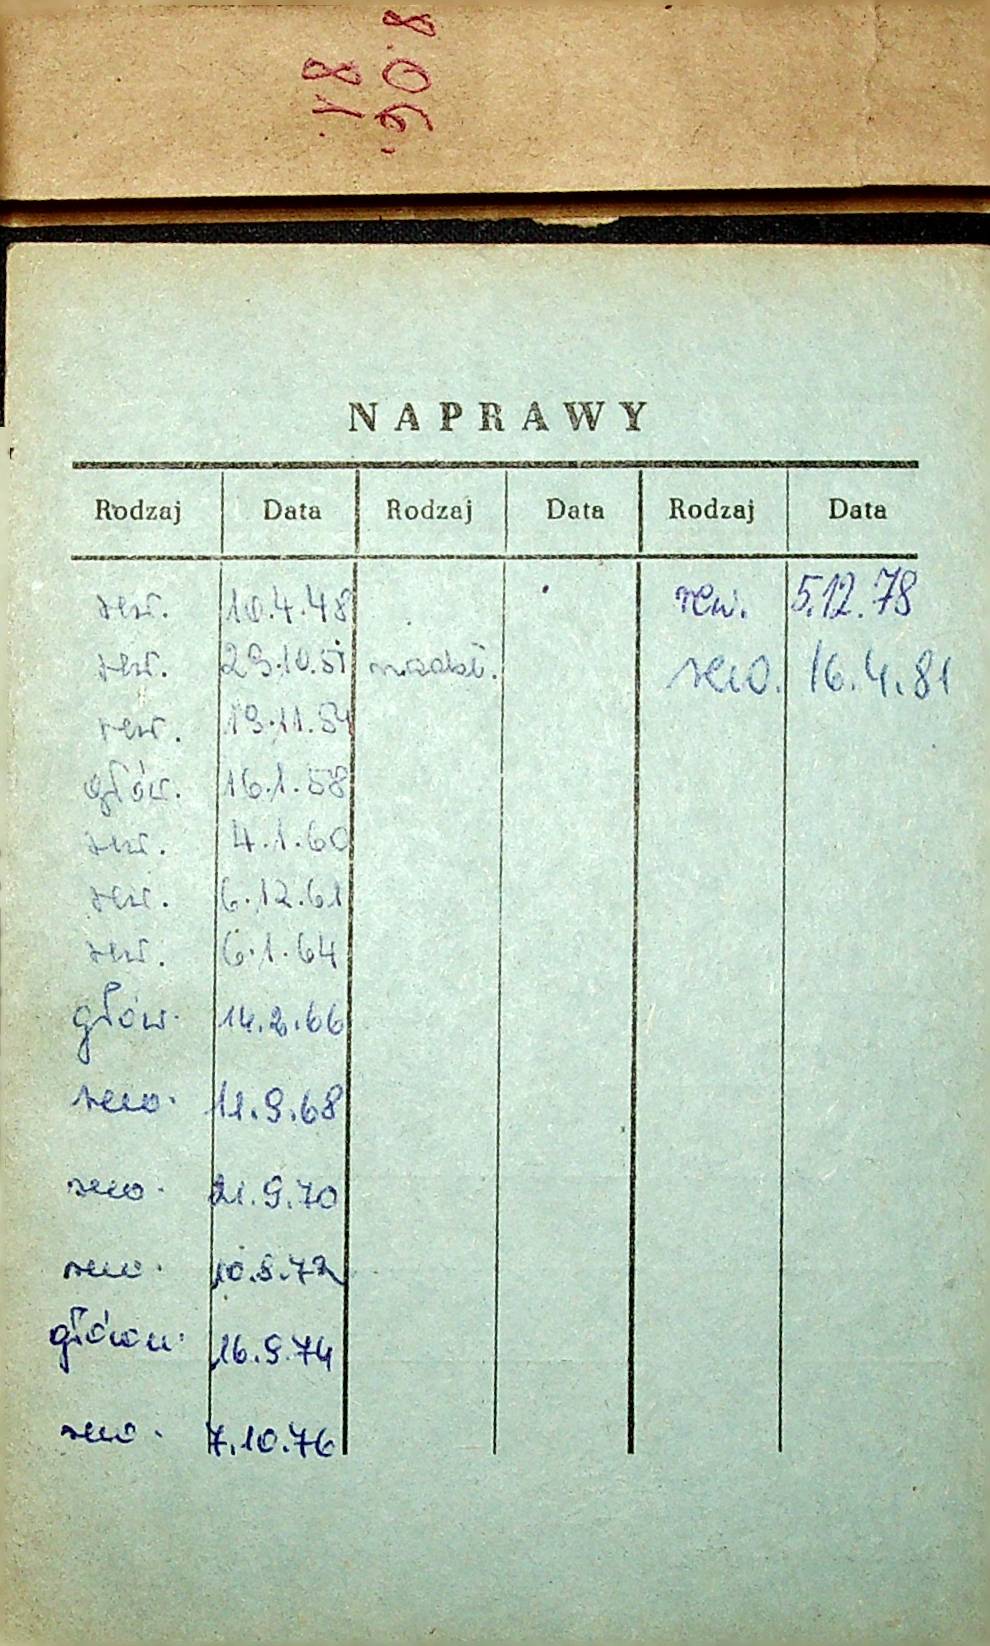 NAPRAWY
Rodzaj Data Rodzaj Data Rodzaj Data
rew. 10.4.48 rew. 5.12.78
rew. 29.10.51 rew. 16.4.81
rew. 19.11.54
głów. 16.1.58
rew. 4.1.60
rew. 6.12.61
rew. 6.1.64
głów. 14.2.66
rew. 11.9.68
rew. 21.9.70
rew. 10.8.72
główn. 16.9.74
rew. 7.10.76